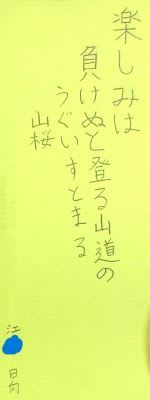 楽しみは
負けぬと登る山道の
うぐいすとまる
山桜
江
日向